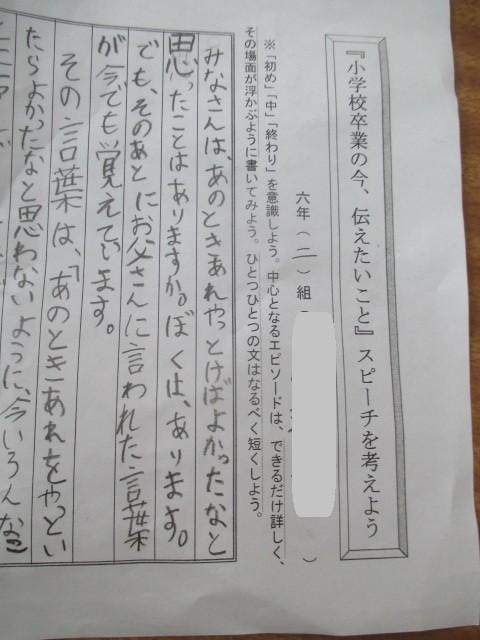 『小学校卒業の今、伝えたいこと』スピーチを考えよう
六年（二）組
）
※「初め」「中」「終わり」を意識しよう。中心となるエピソードは、できるだけ詳しく、
その場面が浮かぶように書いてみよう。ひとつひとつの文はなるべく短くしよう。
みなさんは、あのときあれやっとけばよかったなと
思ったことはありますか。ぼくは、あります。
でも、そのあとにお父さんに言われた言葉
が今でも覚えています。
その言葉は、「あのときあれをやっとい
たらよかったなと思わないように、今いろんなこ